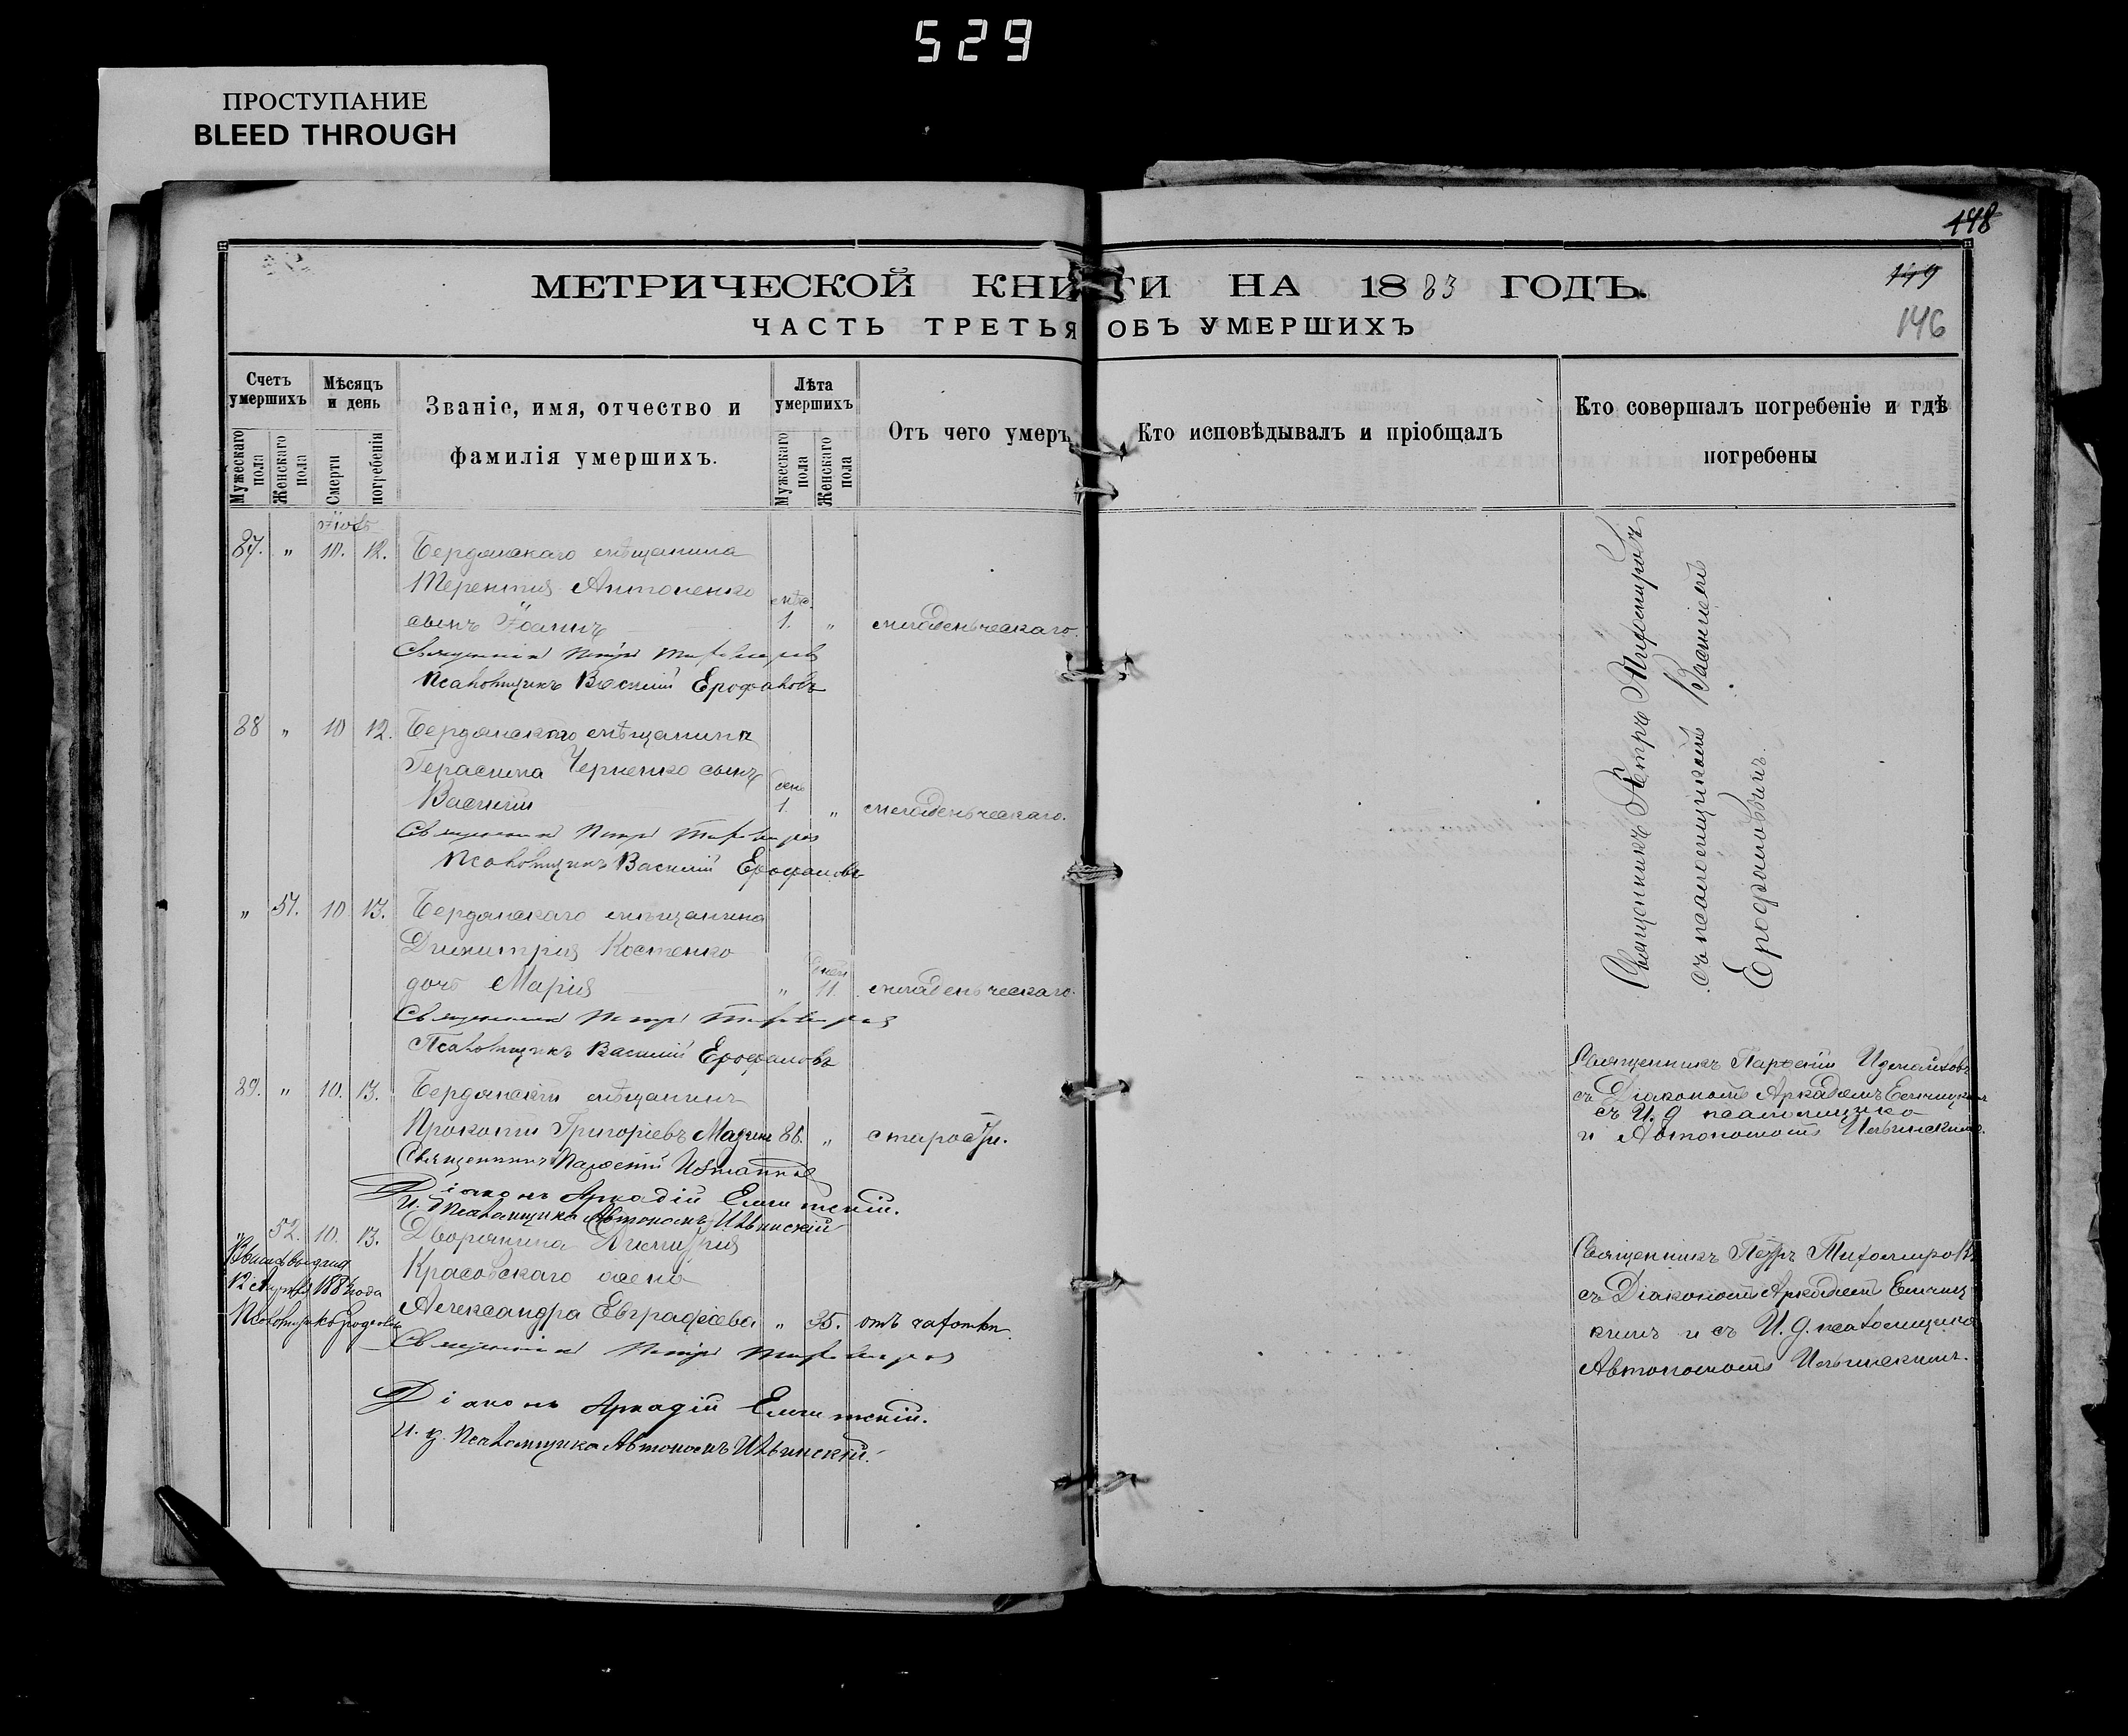 529
ПРОСТУПАНИЕ
BLEED THROUGH
148
МЕТРИЧЕСКОЙ КНИГИ НА 1883 ГОДЪ.
119
146
ЧАСТЬ ТРЕТЬЯ ОБЪ УМЕРШИХЪ
Счетъ умершихъ
Мѣсяцъ и день
Званіе, имя, отчество и фамилія умершихъ.
Лѣта умершихъ
Отъ чего умеръ
Кто исповѣдывалъ и пріобщалъ
Кто совершалъ погребеніе и гдѣ погребены
Мужескаго пола
Женскаго пола
Смерти
погребенія
Мужескаго пола
Женскаго пола
87. " 10. 12. Бердянскаго мѣщанина
Терентія Антоненко
сынъ Іоаннъ 1. " младенческаго.
Священникъ Петръ Тихомировъ
Псаломщикъ Василій Ерофаловъ
Священникъ Петръ Тихомировъ
съ псаломщикомъ Василіемъ
Ерофаловымъ.
88 " 10 12. Бердянскаго мѣщанина
Герасима Черненко сынъ
день
Василій 1. " младенческаго.
Священникъ Петръ Тихомировъ
Псаломщикъ Василій Ерофаловъ
" 51. 10 13. Бердянскаго мѣщанина
Димитрія Костенко
дней
дочь Марія " 11. младенческаго.
Священникъ Петръ Тихомировъ
Псаломщикъ Василій Ерофаловъ
89. " 10. 13. Бердянскій мѣщанинъ
Прокопій Григорьевъ 86. " старости.
Священникъ
Діаконъ Аркадій
И. д. Псаломщика Автономъ Ильинскій
Священникъ
съ Діакономъ Аркадіемъ
съ И. д псаломщика
и Автономомъ Ильинскимъ.
" 52. 10. 13. Дворянина Димитрія
Красовскаго жена
Александра Евграфіева " 35. отъ чахотки.
Священникъ Петръ Тихомировъ
Діаконъ Аркадій
И. д. Псаломщика Автономъ Ильинскій.
12 1884 года
Псаломщикъ
Священникъ Петръ Тихомировъ
съ Діакономъ Аркадіемъ
и съ И. д. псаломщика
Автономомъ Ильинскимъ.